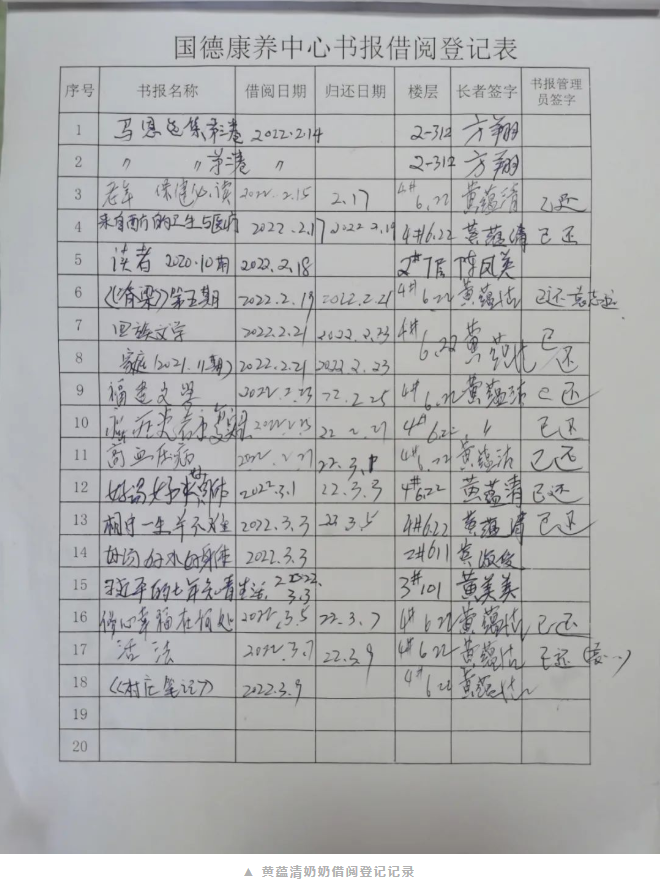 国德康养中心书报借阅登记表
序号 书报名称 借阅日期 归还日期 楼层 长者签字 书报管理员签字
1 马恩选集第三卷 2022.2.14 2-312 方翔
2 〃 〃第二卷 〃 2-312 方翔
3 老年 保健必读 2022.2.15 2.17 4#6.22 黄蕴清 已还
4 来自西方的卫生与医疗 2022.2.17 2022.2.19 4#6.22 黄蕴清 已还
5 读者 2020.10期 2022.2.18 2#7层 陈凤美
6 《脊梁》第五期 2022.2.19 2022.2.21 4#6.22 黄蕴清 已还
7 回族文学 2022.2.21 2022.2.23 4#6.22 黄蕴清 已还
8 家庭(2021.11期) 2022.2.21 2022.2.23
9 福建文学 2022.2.23 22.2.25 4#6.22 黄蕴清 已还
10 22.2.27 4#6.22 〃 已还
11 高血压病 2022.2.27 22.3.1 4#6.22 黄蕴清 已还
12 2022.3.1 22.3.3 4#622 黄蕴清 已还
13 相守一生并不难 2022.3.3 22.3.5 4#6.22 黄蕴清 已还
14 2022.3.3 2#611 黄
15 习近平的七年知青生活 2022.3.3 3#101 黄美美
16 你心幸福在何处 2022.3.5 22.3.7 4#6.22 黄蕴清 已还
17 活法 2022.3.7 22.3.9 4#6.22 黄蕴清 已还
18 《村庄笔记》 2022.3.9 4#6.22 黄蕴清
19
20
▲ 黄蕴清奶奶借阅登记记录